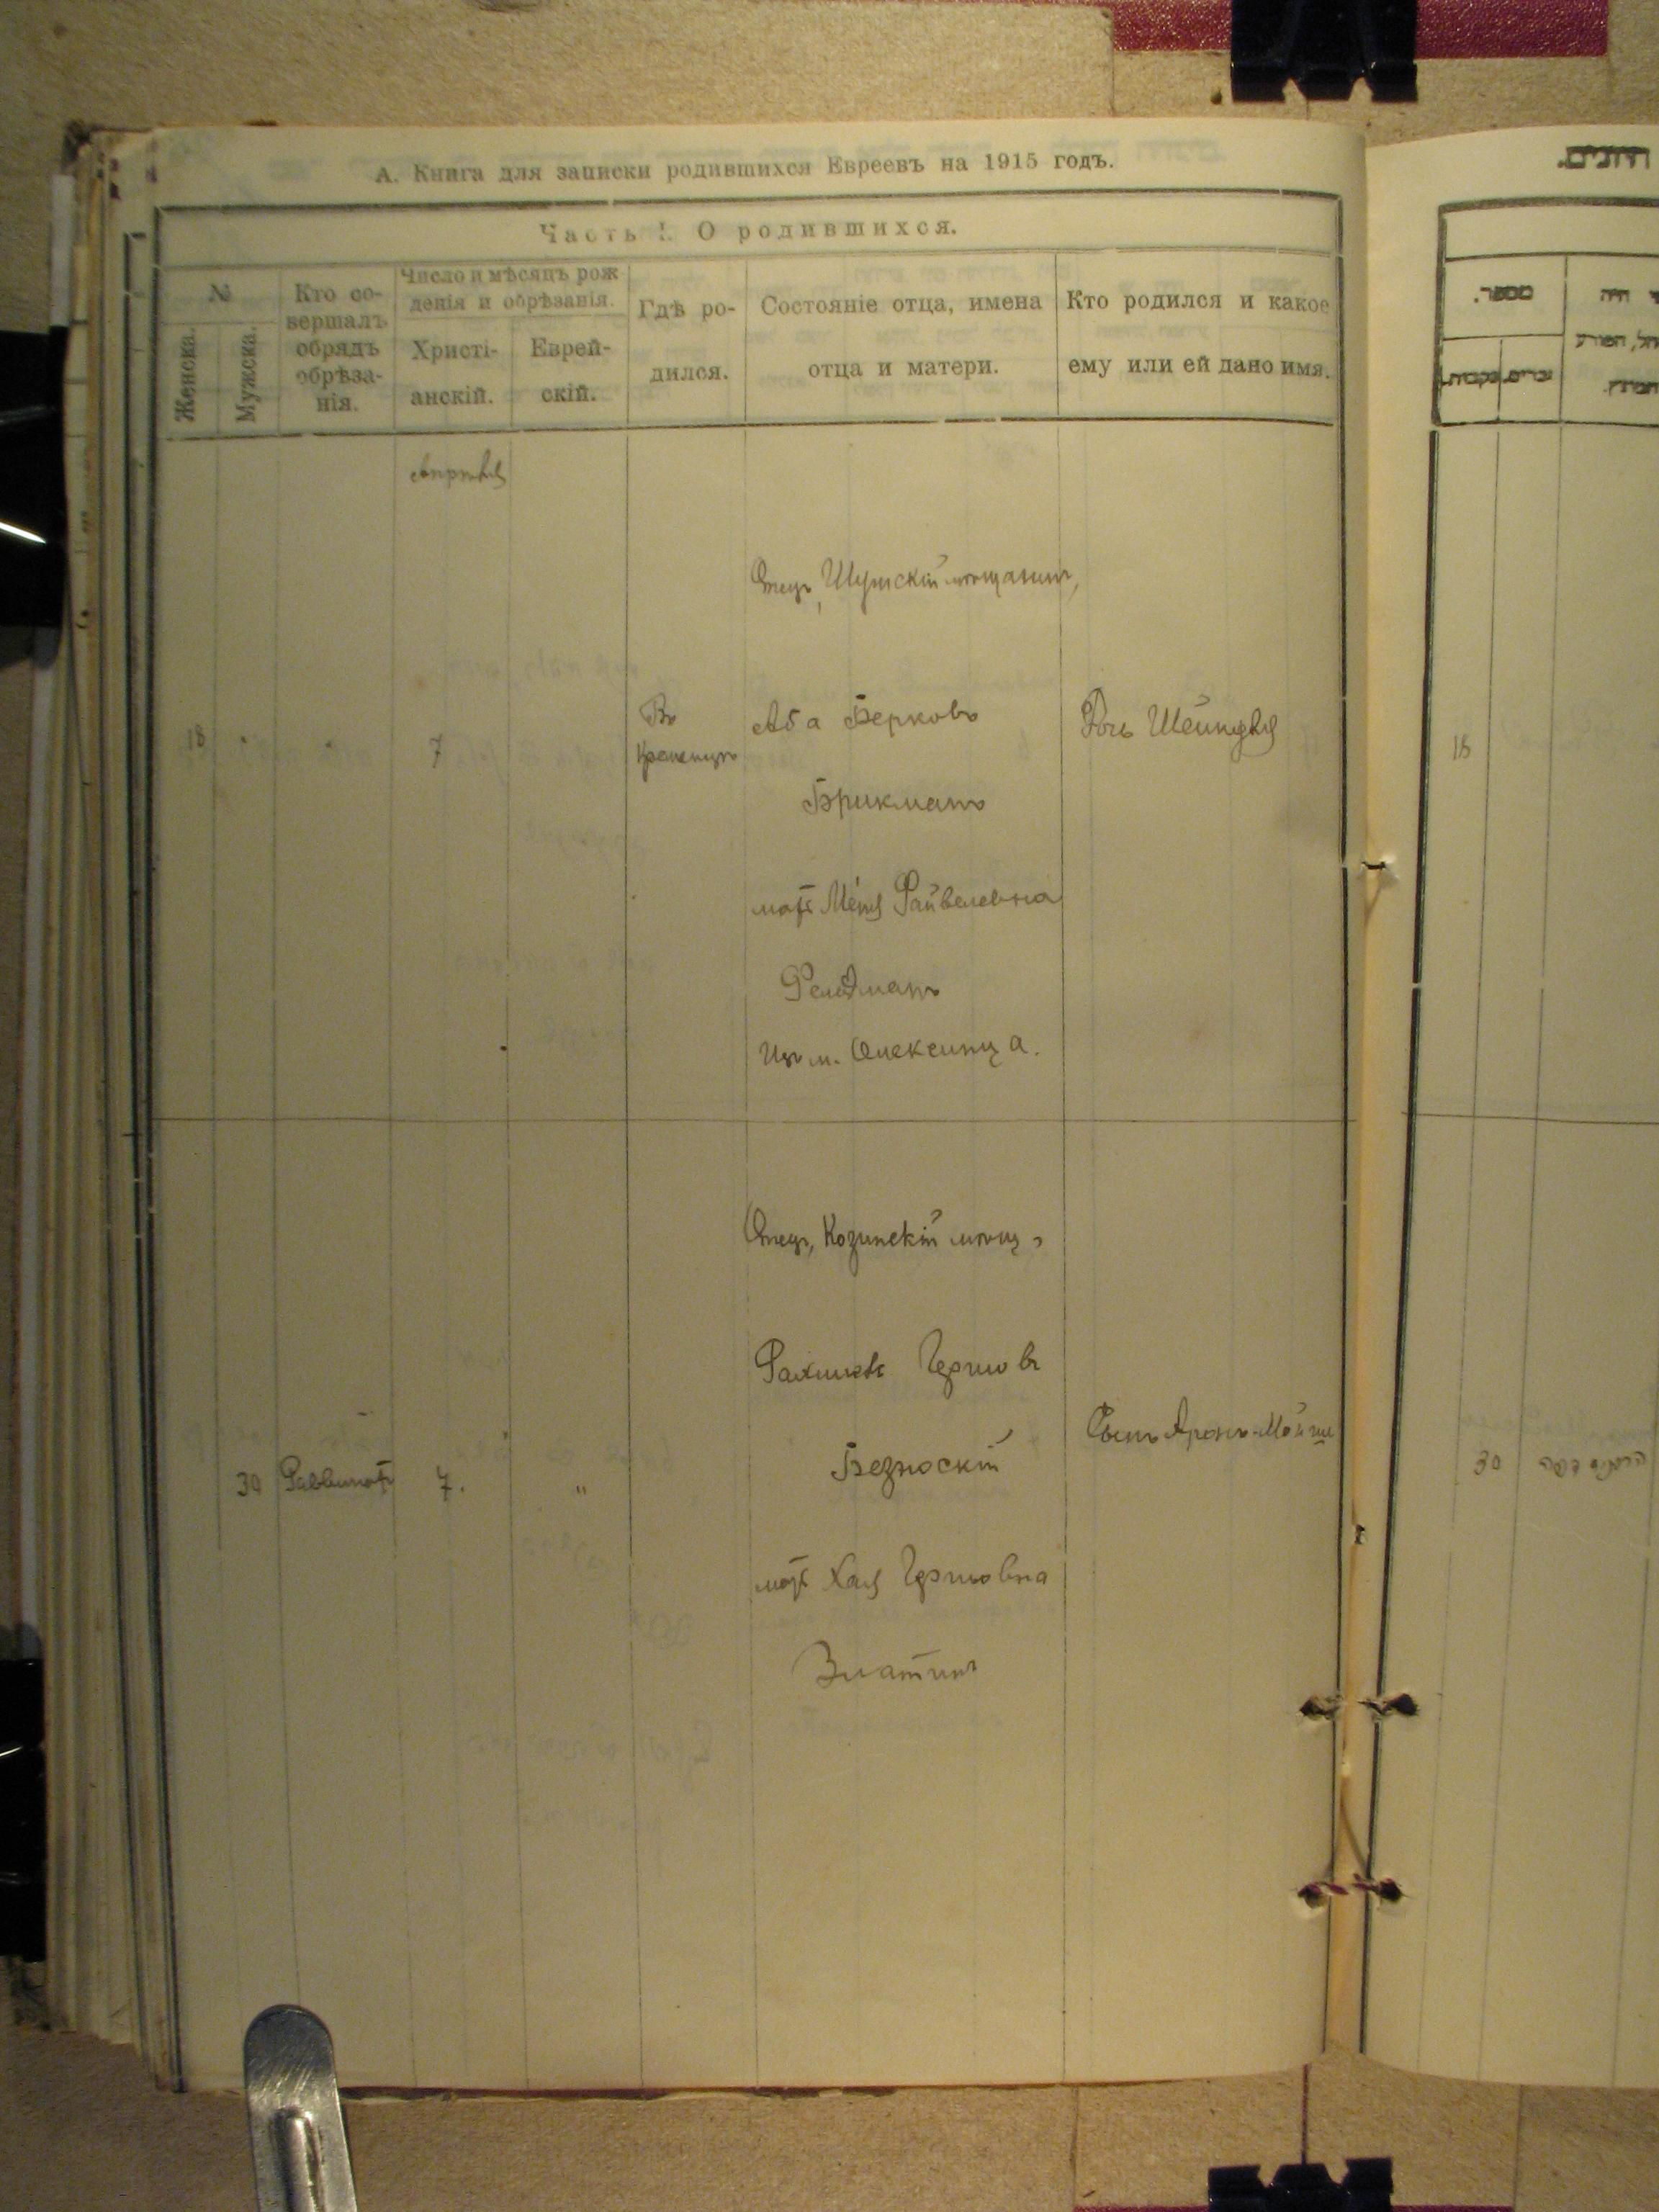 А. Книга для записки родившихся Евреевъ на 1915 годъ.
Часть I. О родившихся.
№
Женска.
Мужска.
Кто со-
вершалъ
обрядъ
обрѣза-
нія.
Число и мѣсяцъ рож
денія и обрѣзанія.
Христі-
анскій.
Еврей-
скій.
Гдѣ ро-
дился.
Состояніе отца, имена
отца и матери.
Кто родился и какое
ему или ей дано имя.
Апрѣль
18
7
Въ
Кременцѣ
Отецъ, Шумскій мѣщанинъ,
Аба Берковъ
Брикманъ
мать Меня Файвелевна
Фельдманъ
Изъ м. Олексинца.
Дочь Шейндля
30
7.
"
Отецъ, Козинскій мѣщ.
Рахмиель Гершовъ
Безноскій
мать Хая Гершовна
Златинъ
Сынъ Аронъ-Мойше
מספר.
זכרים.
נקבות.
18
30